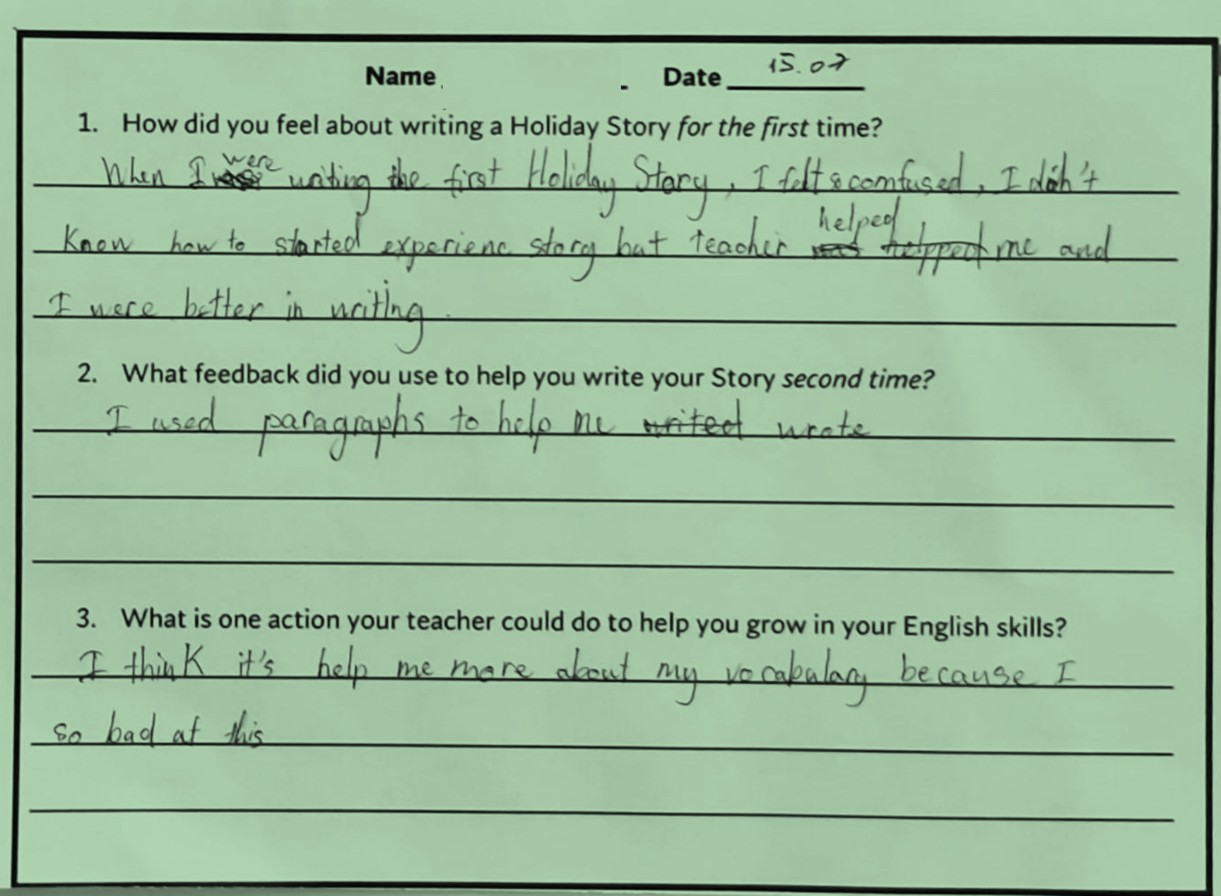 Name . Date 15.07
1. How did you feel about writing a Holiday Story for the first time?
When I were writing the first Holiday Story, I felt comfused, I didn't
Know how to started experienc story but teacher helped me and
I were better in writing.
2. What feedback did you use to help you write your Story second time?
I used paragraphs to help me writed wrote
3. What is one action your teacher could do to help you grow in your English skills?
I think it's help me more about my vocabulary because I
so bad at this